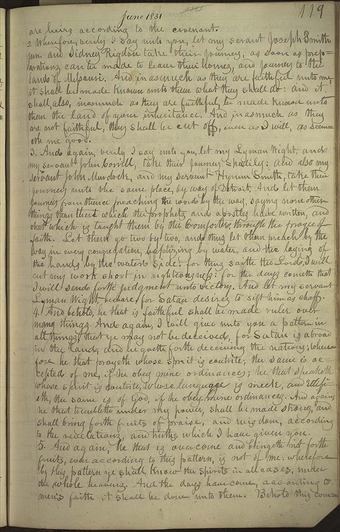 June 1831
119
are heirs according to the covenant.
2 Wherefore, verily I say unto you, let my servant Joseph Smith
jun. and Sidney Rigdon take their journey, as soon as prep-
arations can be made to leave their homes, and journey to the
land of Missouri. And inasmuch as they are faithful unto me,
it shall be made known unto them what they shall do: and it
shall, also, inasmuch as they are faithful, be made known unto
them the land of your inheritance. And inasmuch as they
are not faithful, they shall be cut off, even as I will, as seemeth
me good.
3. And again, verily I say unto you, let my Lyman Wight, and
my servant John Corrill, take their journey speedily: and also my
servant John Murdock, and my servant Hyrum Smith, take their
journey unto the same place, by way of Detroit. And let them
journey from thence preaching the word by the way, saying none other
things than that which the prophets and apostles have written, and
that which is taught them by the Comforter through the prayer of
faith. Let them go two by two, and thus let them preach by the
way in every congregation, baptizing by water and the laying of
the hands by the water's side: for thus saith the Lord, I will
cut my work short in righteousness: for the days cometh that
I will send forth judgment unto victory. And let my servant
Lyman Wight beware, for Satan desireth to sift him as chaff.
4. And behold, he that is faithful shall be made ruler over
many things. And again, I will give unto you a pattern in
all things, that ye may not be deceived, for Satan is abroad
in the land, and he goeth forth deceiving the nations; where-
fore he that prayeth whose spirit is contrite, the same is ac-
cepted of me, if he obey mine ordinances; he that speaketh
whose spirit is contrite, whose language is meek, and edifi-
eth, the same is of God, if he obey mine ordinances. And again
he that trembleth under my power, shall be made strong, and
shall bring forth fruits of praise, and wisdom, according
to the revelations, and truths which I have given you.
5. And again, he that is overcome and bringeth not forth
fruits, even according to this pattern, is not of me: wherefore
by this pattern ye shall know the spirits in all cases, under
the whole heavens. And the days have come, according to
men's faith it shall be done unto them. Behold this com